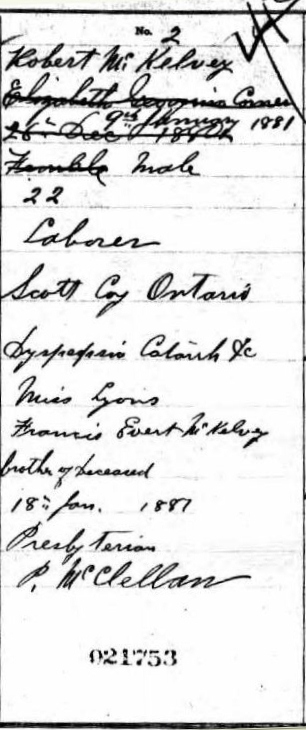 No. 2
Robert Mc Kelvey
Elizabeth
9th January 1881
26th Dec. 188
Female Male
22
Laborer
Scott Coy Ontario
Dyspepsia Catarrh &c
Miss Lyons
Francis Evert McKelvey
brother of Deceased
18th Jan. 1881
Presbyterian
P. McClellan
021753